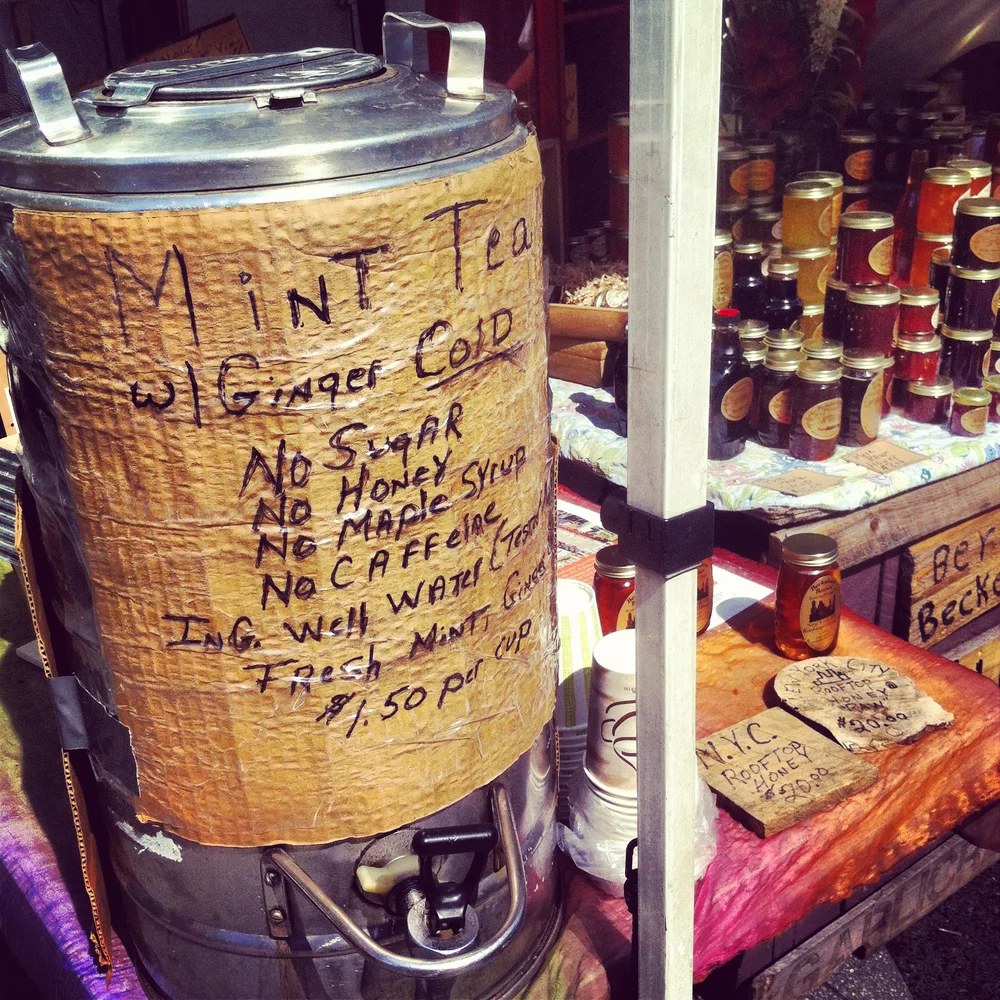 Mint Tea
w/ Ginger Cold
No Sugar
No Honey
No Maple Syrup
No Caffeine
Ing. Well Water (Tested
Fresh Mint, Ginger
$1.50 per cup
N.Y.C.
Rooftop
Honey
$20.00
York City
Rooftop
Honey
Raw
$20.00
Ber
Becke